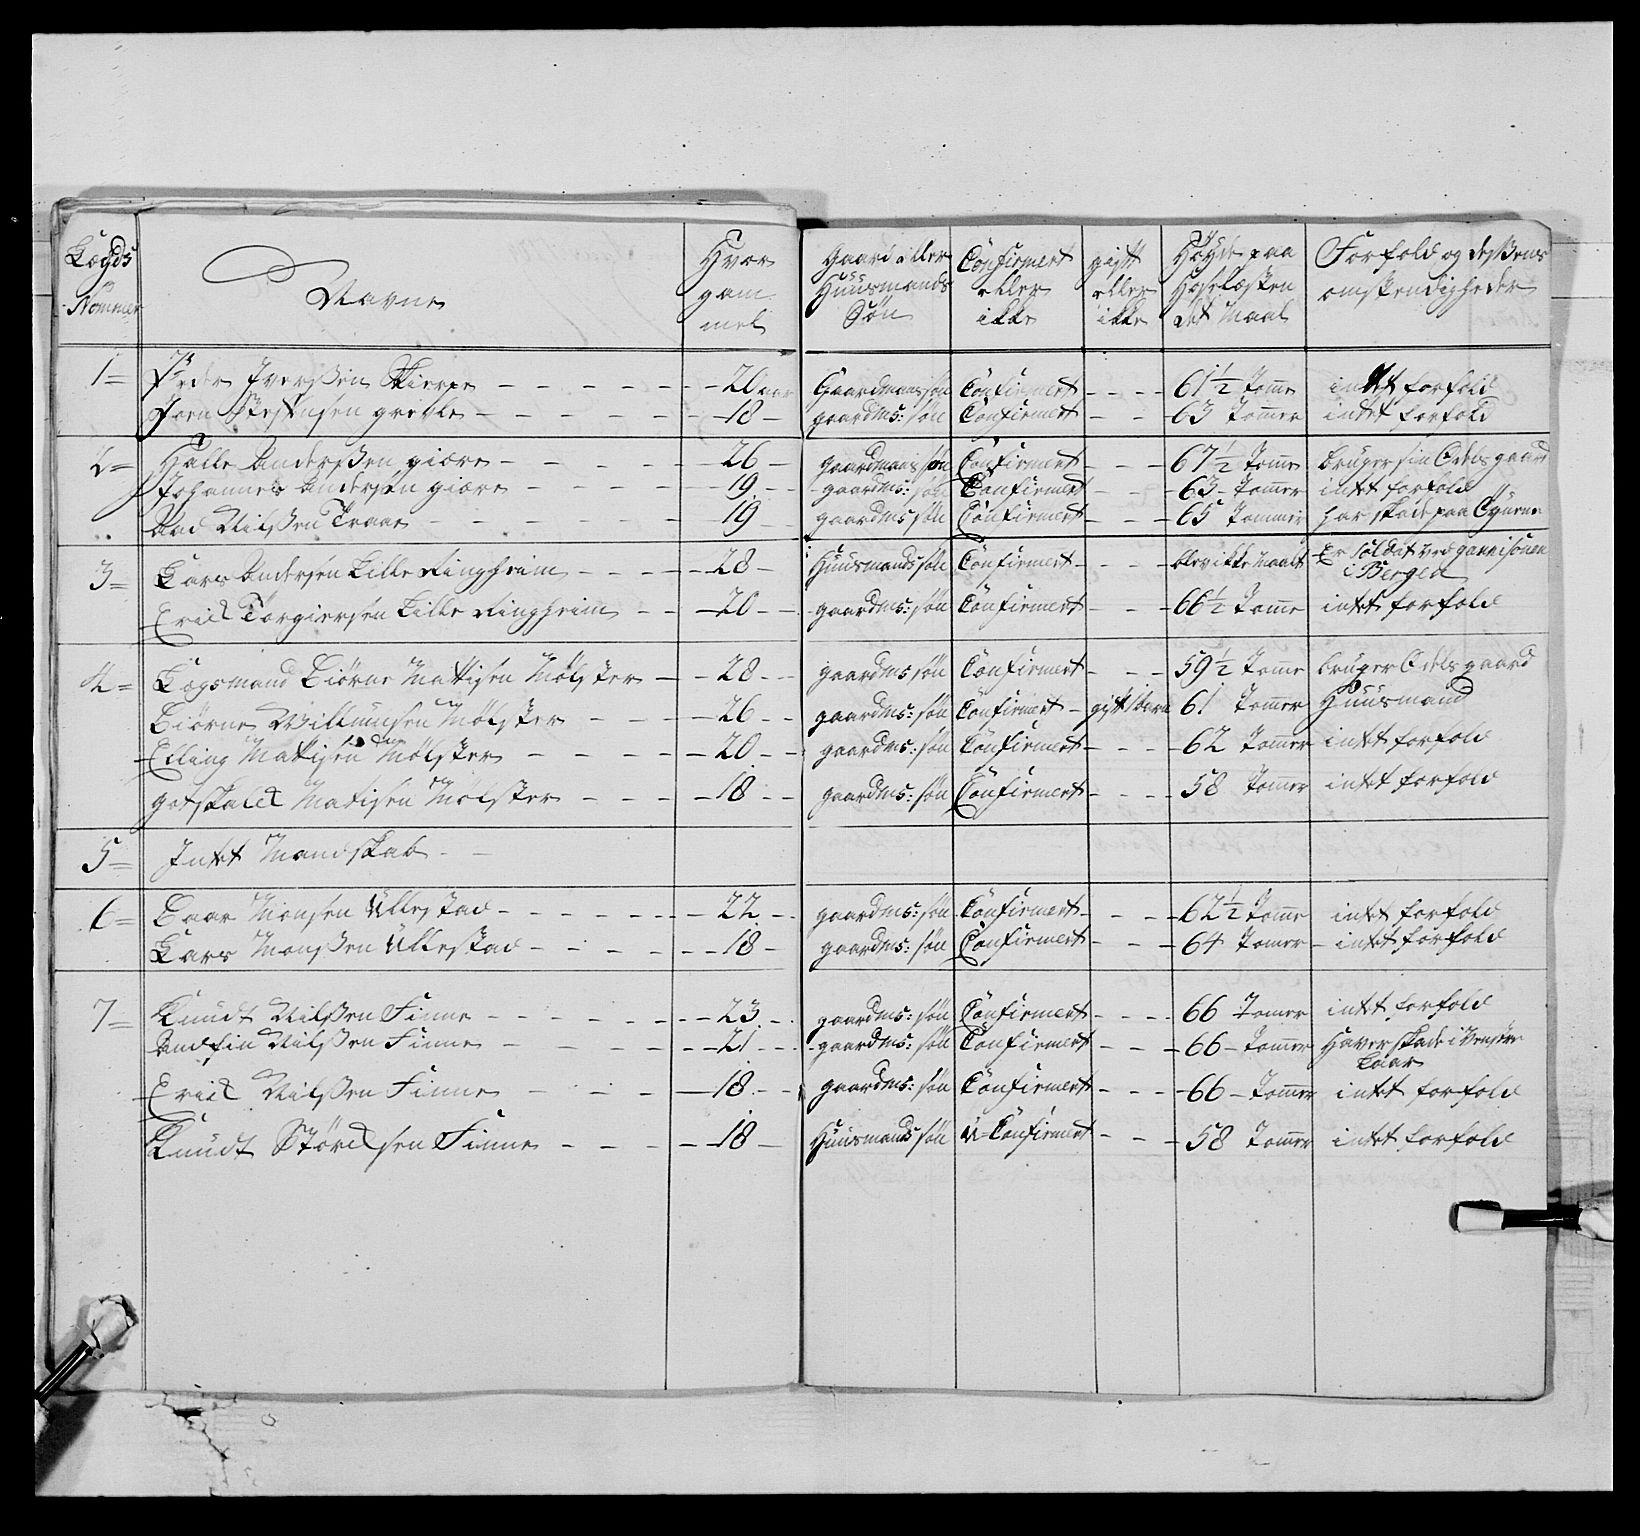 Lægds Nommer | Navne | Hvor gam mel | gaard eller Huusmands Søn | Confirmert eller ikke | gift eller ikke | Høyde paa Hoselæsten det Maal | Forfald og desßens omstendigheder
1= Peder Iverßen Skierpe - - - 20 aar Gaardmans søn Confirmert - - - 61½ Tomme intet forfald
Joen Stephensen grible - - - 18 - gaardms: søn Confirmert - - - 63 Tommer intet forfald
2= Halle Anderßen giære - - - 26 - gaardmans søn Confirmert - - - 67½ Tomme bruger sin Odels gaard
Johannes Andersen giære - - - 19 - gaardms: søn Confirmert - - - 63 - Tommer intet forfald
Aad Nilßen Traae - - - 19 - gaardms søn Confirmert - - - 65 Tommer har skade paa
3= Lars Andersen Lille Ringheim - - - 28 - Huusmands søn Confirmert - - - blev ikke Maalt Er Soldat ved garnisonen
i Bergen
Erick Torgiersen Lille Ringheim - - - 20 - gaardms: søn Confirmert - - - 66½ Tomme intet forfald
4= Lægsmand Biørne Mattisen Mølster - 28 - gaardms søn Confirmert - - - 59½ Tomme bruger Odels gaard
Biørne Villumsen Mølster - - - 26 - gaardms: søn Confirmert - gift 1 barn 61 Tommer Huusmand
Elling Mattisen Mølster - - - 20 - gaardms: søn Confirmert - - - 62 Tommer intet forfald
gotskalck Matisen Mølster - - - 18 - gaardms: søn Confirmert - - - 58 Tommer intet forfald
5= Intet Mandskab
6= Laar Monsen Ullestad - - - 22 - gaardms: søn Confirmert - - - 62½ Tomme intet forfald
Lars Monßen Ullestad - - - 18 - gaardms: søn Confirmert - - - 64 Tomer - intet forfald
7= Knudt Nilßen Finne - - - 23 - gaardms: søn Confirmert - - - 66 Tomer intet forfald
Andfin Nilßen Finne - - - 21 - gaardms: søn Confirmert - - - 66 - Tommer Haver skade i Venstre
Laar
Erick Nilßen Finne - - - 18 - gaardms: søn Confirmert - - - 66 - Tommer intet forfald
Knudt Størcksen Finne - - - 18 - Huusmands søn U-Confirmert - - - 58 Tommer intet forfald